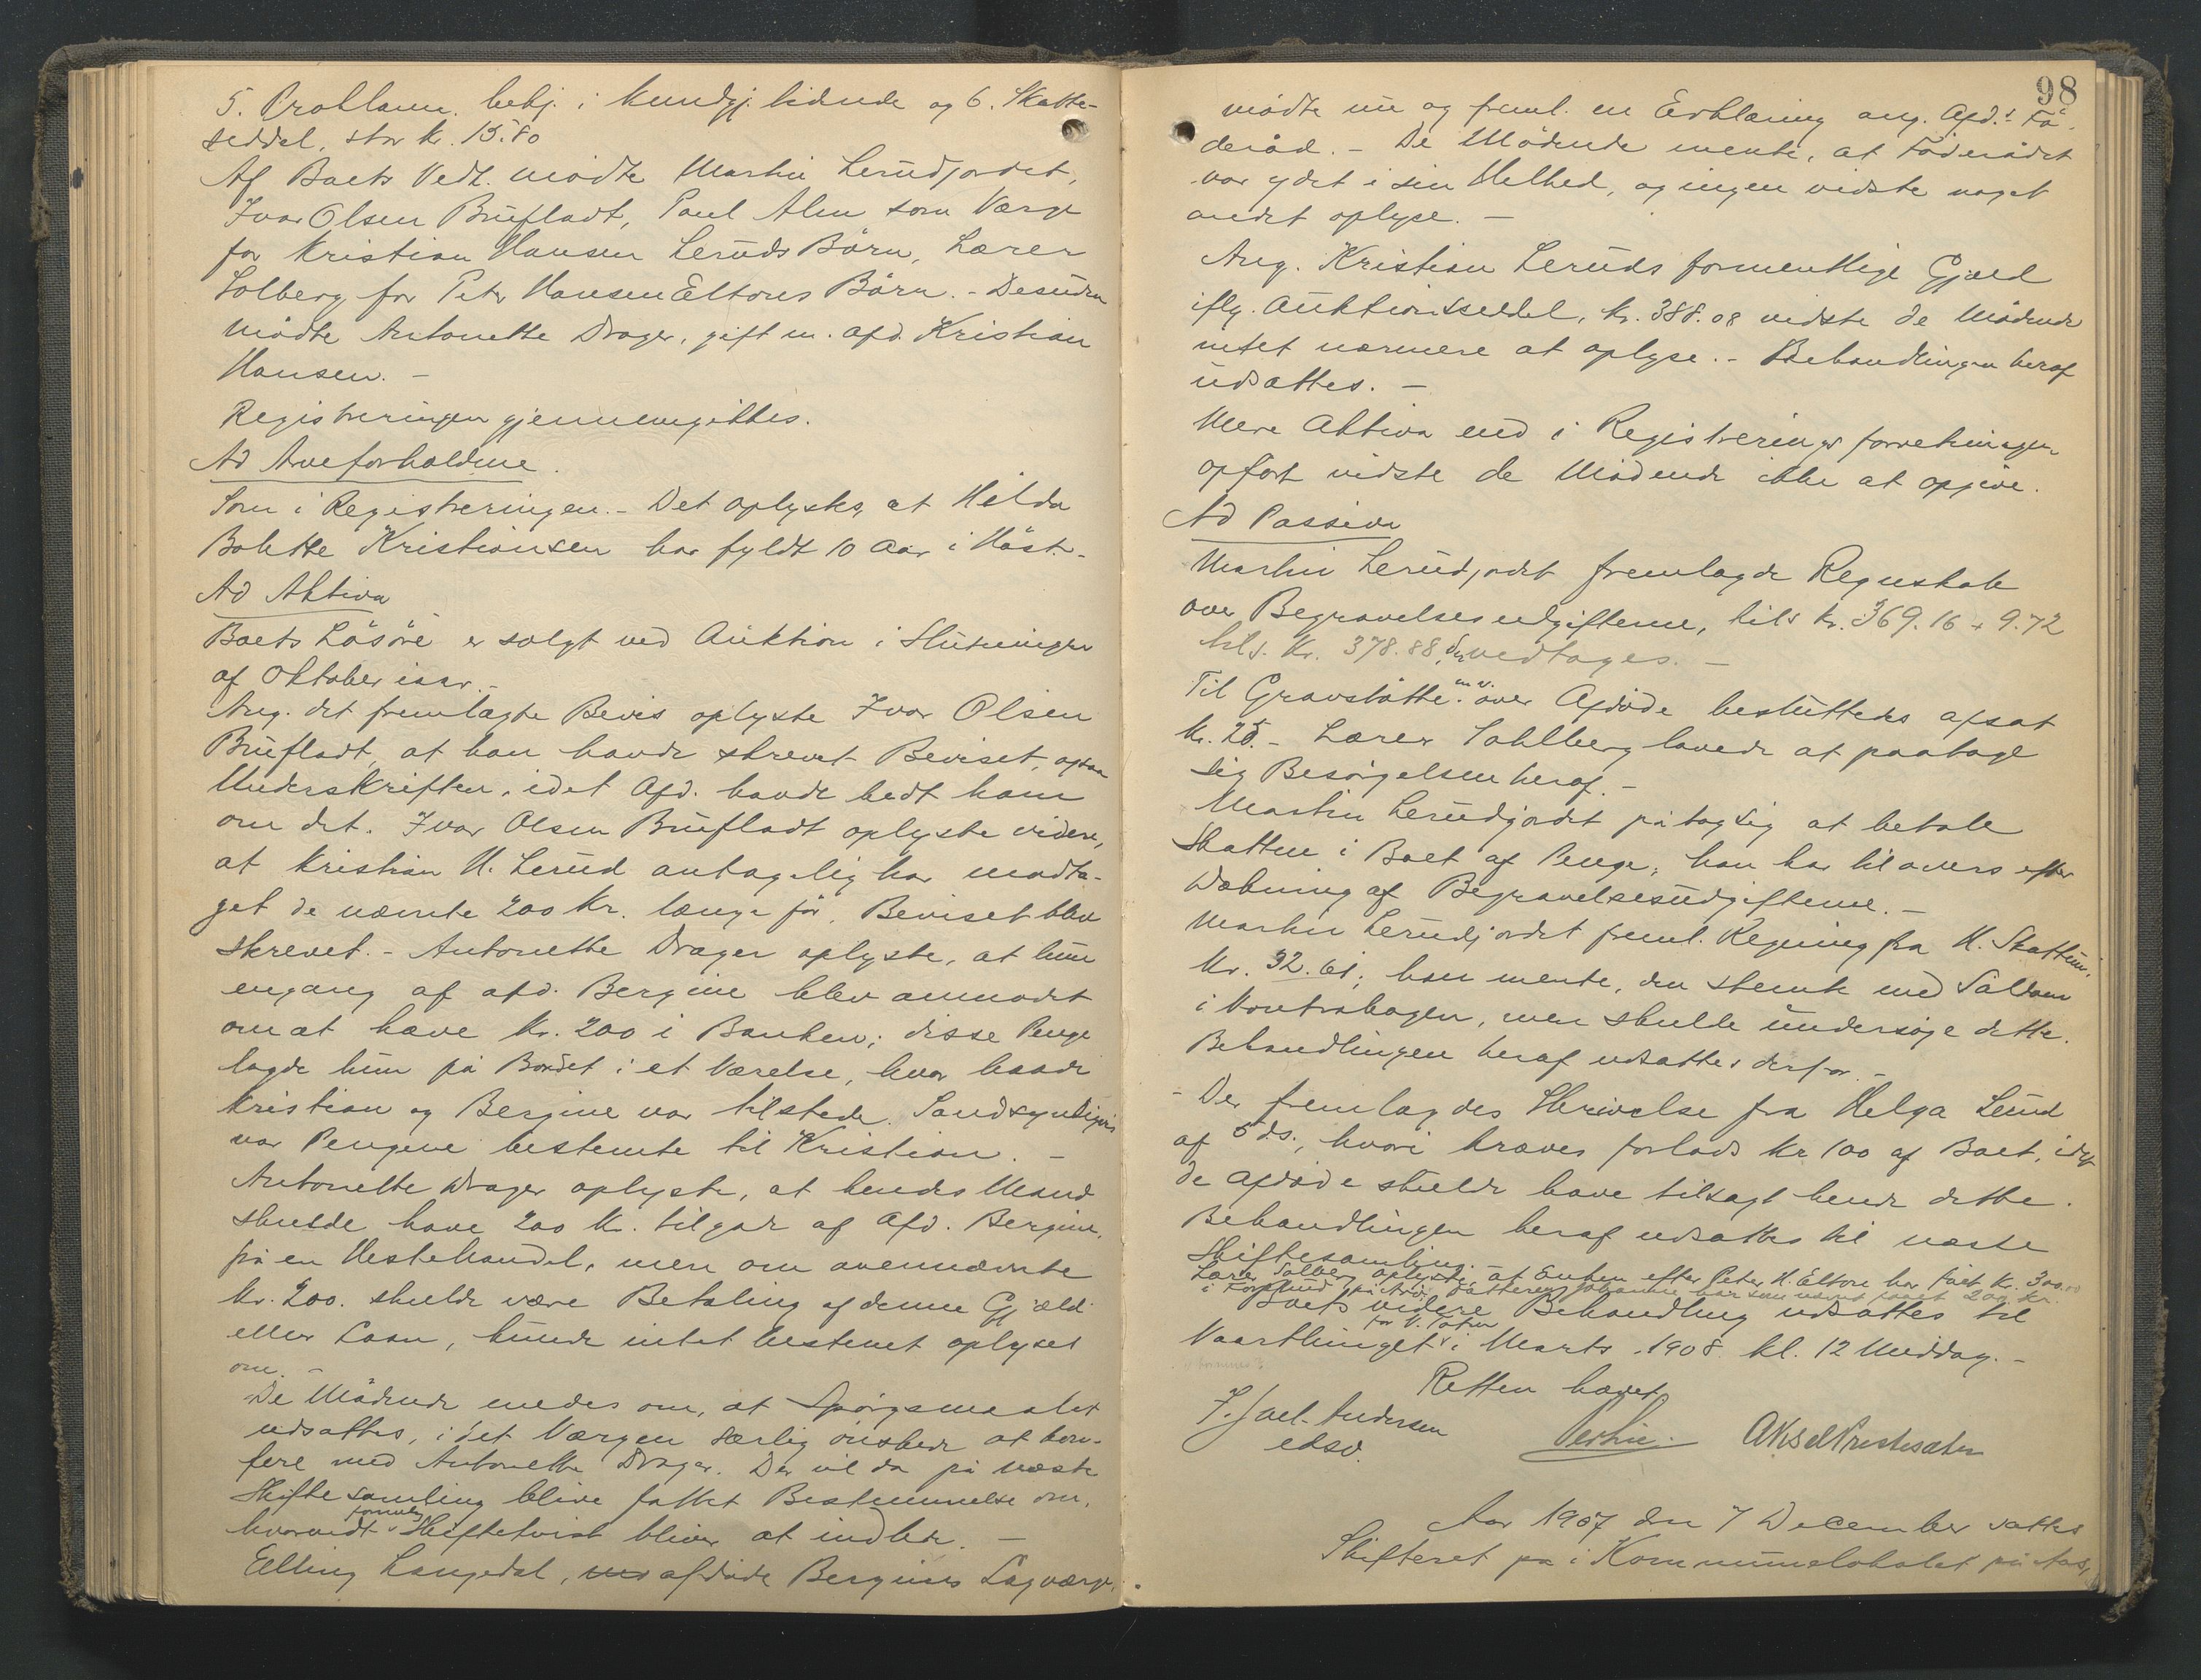 5. Proklama, bekj. i kundgj. tidende og 6. Skatte-
seddel, stor kr. 15.80
Af Boets Vedk. mødte Martin Lerudjordet,
Ivar Olsen Brufladt, Paul Alm som Værge
for Kristian Hansen Leruds Börn, Lærer
Solberg for Peter Hansen Eltons Börn. - Desuden
mödte Antonette Drager, gift m. afd. Kristian
Hansen. -
Registreringen gjennemgikkes.
Ad Arveforholdene.
Som i Registreringen. - Det oplystes, at Hilda
Bolette Kristiansen har fyldt 10 Aar i Høst. -
Ad Aktiva
Boets Lösöre er solgt ved Auktion i Slutningen
af Oktober iaar. -
Ang. det fremlagte Bevis oplyste Ivar Olsen
Brufladt, at han havde skrevet Beviset, ogsaa
Underskriften, idet Afd. havde bedt ham
om det. Ivar Olsen Brufladt oplyste videre,
at Kristian H. Lerud antagelig har modta-
get de nævnte 200 Kr. længe för Beviset blev
skrevet. - Antonette Drager oplyste, at hun
engang af afd. Bergine blev anmodet
om at hæve Kr. 200 i Banken; disse Penge
lagde hun på Bordet i et Værelse, hvor baade
Kristian og Bergine var tilstede. Sandsynligvis
var Pengene bestemte til Kristian. -
Antonette Drager oplyste, at hendes Mand
skulde have 200 Kr. tilgode af Afd. Bergine
på en Hestehandel, men om ovennævnte
Kr. 200. skulde være Betaling af denne Gjæld
eller Laan, kunde intet bestemt oplyses
om. -
De Mödende enedes om, at Spörgsmaalet
udsattes, idet Værgen særlig önskede at kon-
fere med Antonette Drager. Der vil da på næste
Skiftesamling blive fattet Bestemmelse om,
hvorvidt Skiftetvist bliver at indlede. -
Elling Langedal, afdöde Bergines Lagværge,
98
mødte nu og freml. en Erklæring ang. Afd.s Fö-
deråd. - De Mödende mente, at Föderådet
var ydet i sin Helhed, og ingen vidste noget
andet oplyse. -
Ang. Kristian Leruds formentlige Gjæld
iflg. Auktionsseddel, kr. 388.08 vidste de Mödende
intet nærmere at oplyse. - Behandlingen heraf
udsattes. -
Mere Aktiva end i Registreringsforretningen
opfört vidste de Mödende ikke at opgive.
Ad Passiva
Martin Lerudjordet fremlagde Regnskab
over Begravelsesudgifterne, tils kr. 369.16 + 9.72
tils. Kr. 378.88, der vedtages. -
Til Gravstötte m.v. over Afdöde besluttedes afsat
kr. 25. - Lærer Sohlberg lovede at paatage
sig Besörgelsen heraf. -
Martin Lerudjordet påtog sig at betale
Skatten i Boet af Penge, han har tilovers efter
Dækning af Begravelsesudgifterne. -
Martin Lerudjordet freml. Regning fra H. Skattum,
Kr. 32.61; han mente, den stemte med Saldoen
i Kontrabogen, men skulde undersöge dette.
Behandlingen heraf udsattes derfor. -
- Der fremlagdes Skrivelse fra Helga Lerud
af 5 ds., hvori kræves forlods Kr 100 af Boet, idet
de Afdöde skulde have tilsagt hende dette.
Behandlingen heraf udsattes til næste
Skiftesamling. -
Lærer Solberg oplyste, at Enken efter Peter H. Elton har faaet Kr. 300.00
i Forskud på Arv; Datteren Johanne har som nævnt faaet 200 Kr.
Boets videre Behandling udsattes til
Vaarthinget i Marts 1908 kl. 12 Middag. -
Retten hævet
J. Juel-Andersen
edsv.
Aksel Prestesæter
Aar 1907 den 7 December sattes
Skifteret på i Kommunelokalet på Aas,